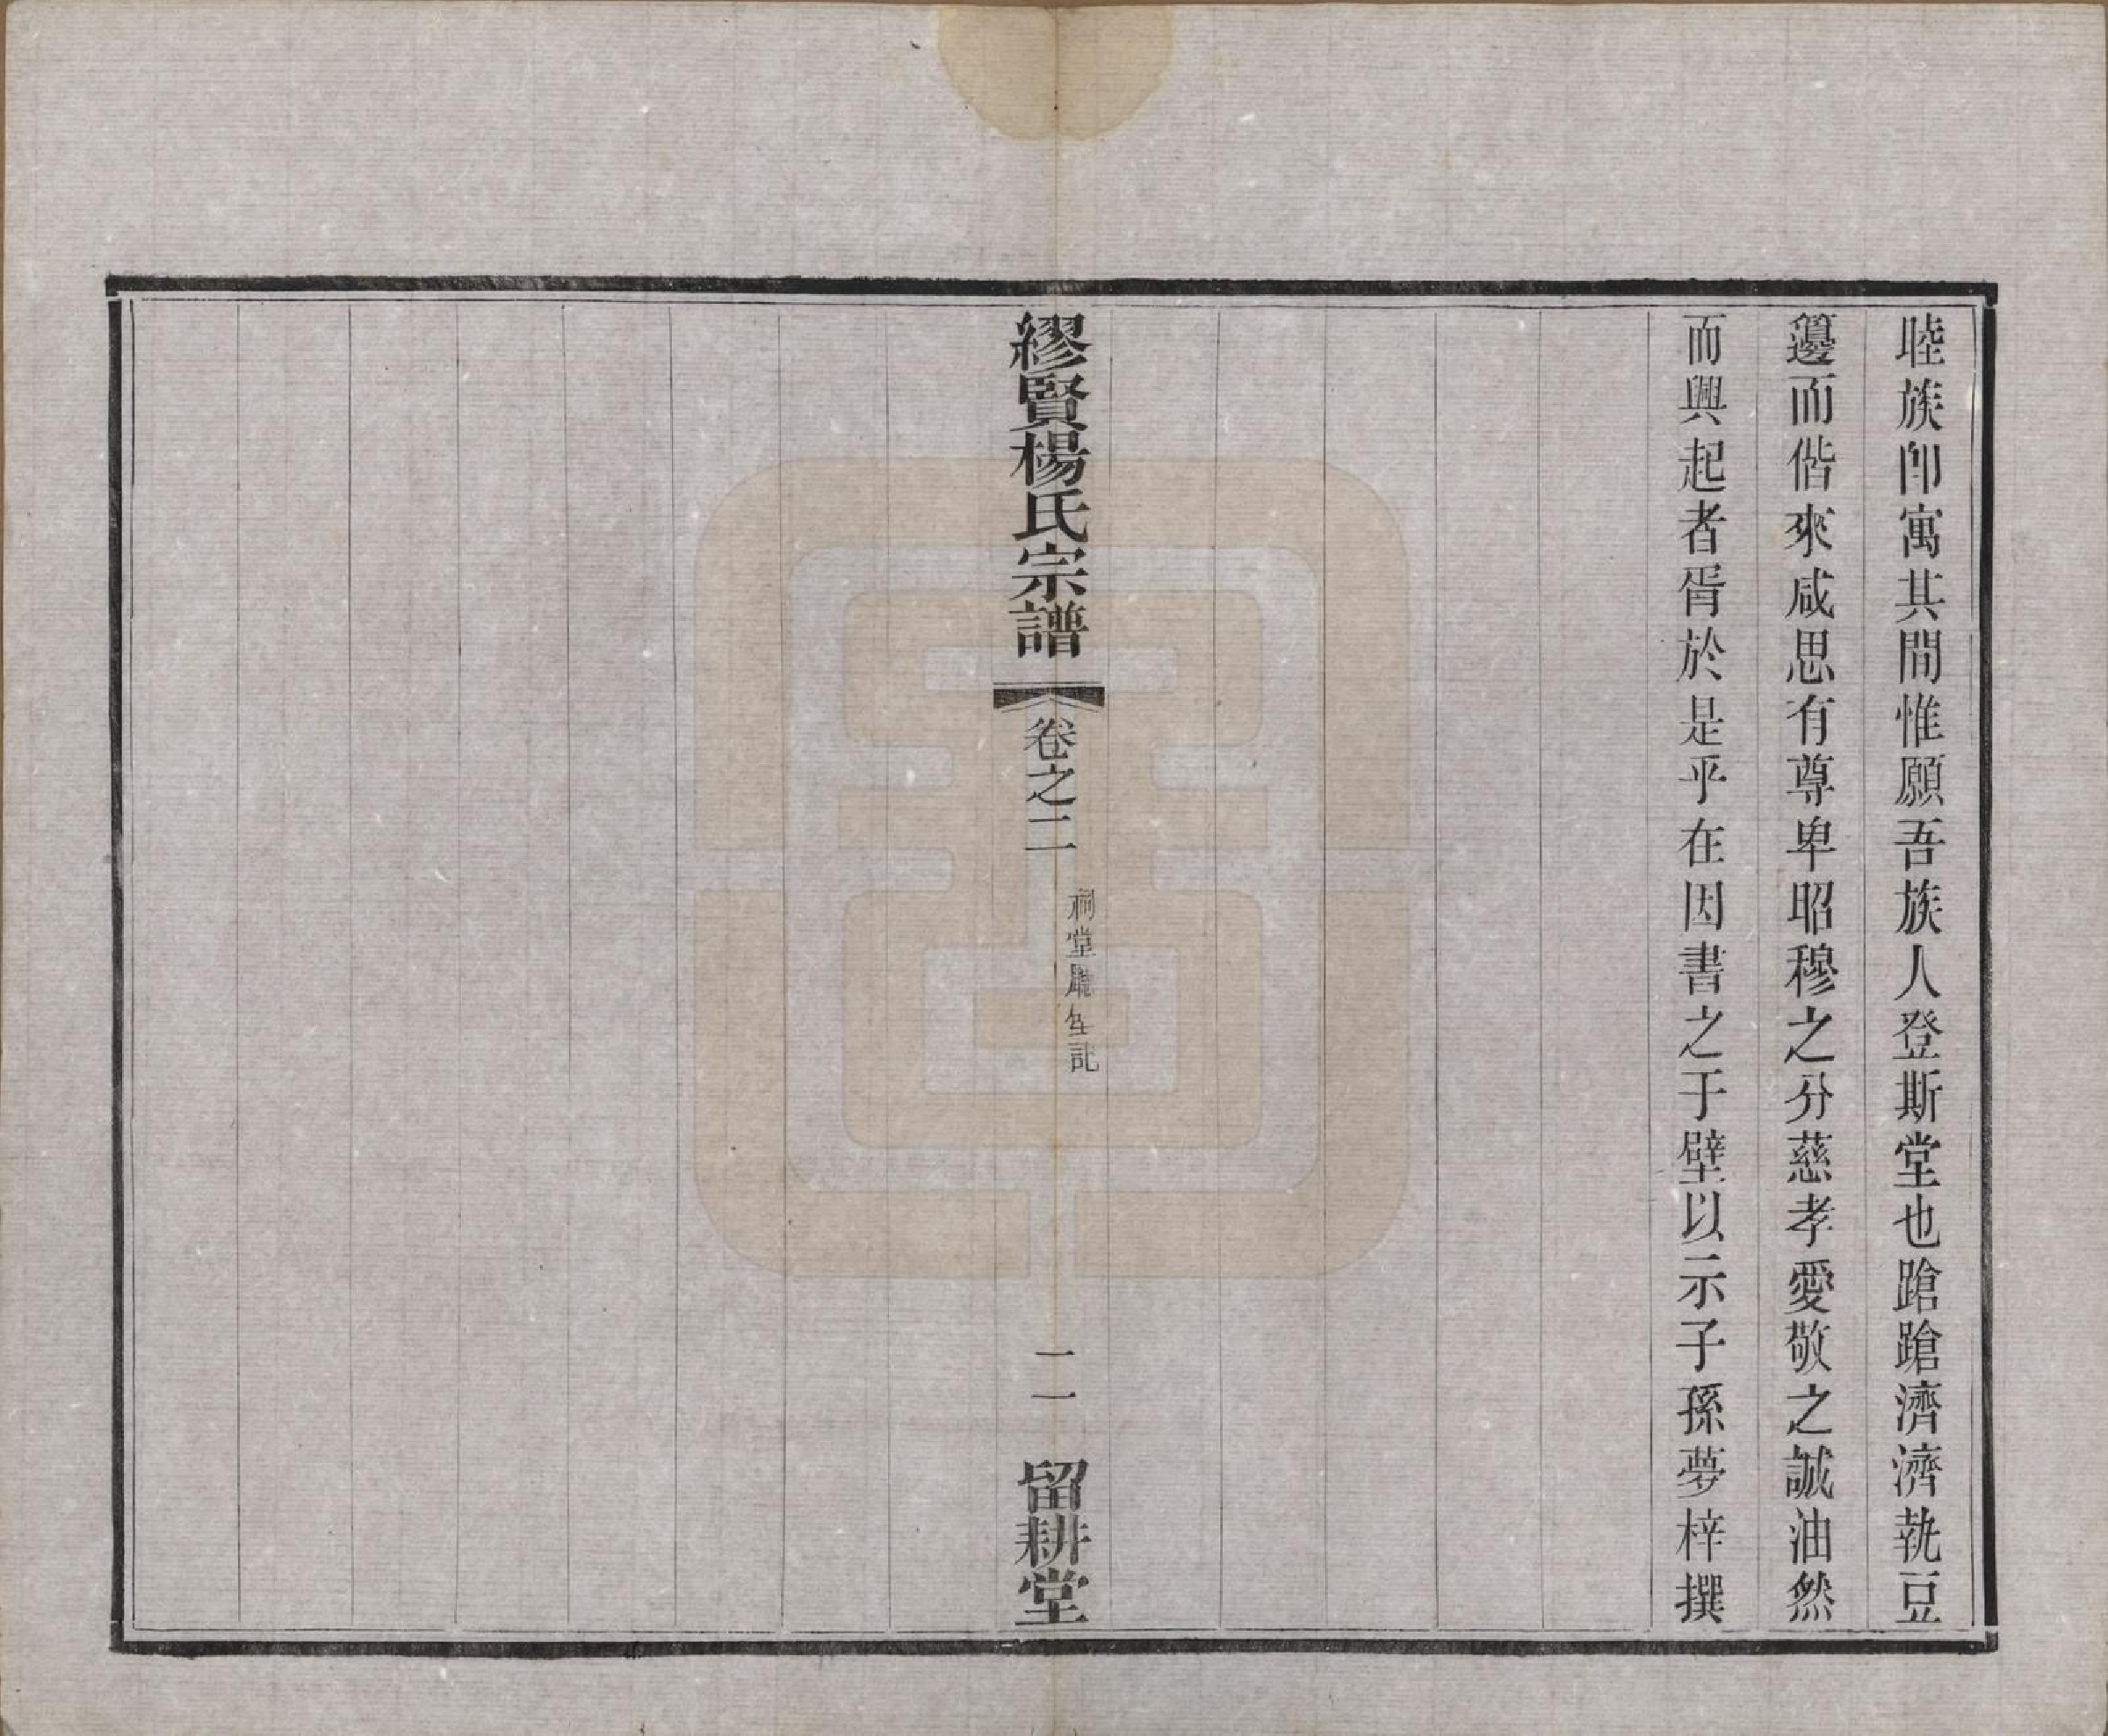 睦族卽寓其間惟願吾族人登斯堂也蹌蹌濟濟執豆
籩而偕來咸思有尊卑昭穆之分慈孝愛敬之誠油然
而興起者胥於是乎在因書之于壁以示子孫夢梓撰
繆賢楊氏宗譜
卷之二
祠堂記
二
留耕堂